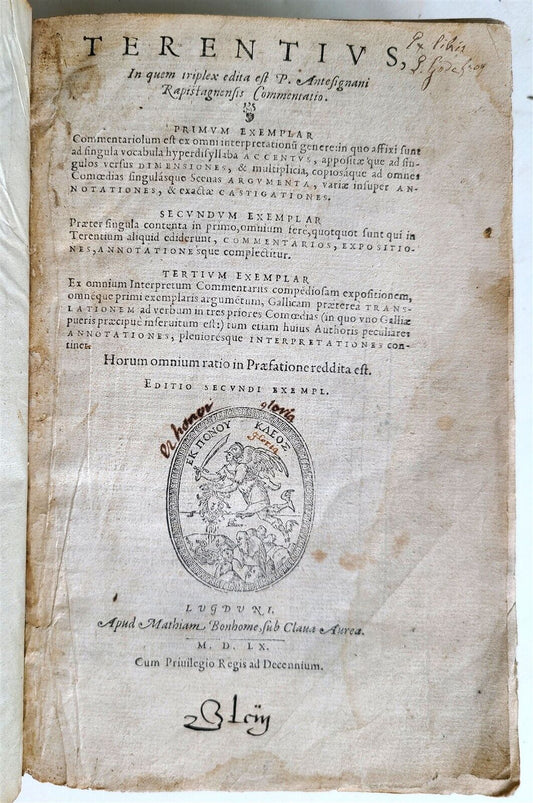 TERENTIVS,
Ex libris
In quem triplex edita est P. Antesignani
Rapistagnensis Commentatio.
PRIMVM EXEMPLAR
Commentariolum est ex omni interpretationũ genere: in quo affixi sunt
ad singula vocabula hyperdisyllaba ACCENTVS, appositæ que ad sin-
gulos versus DIMENSIONES, & multiplicia, copiosáque ad omnes
Comœdias singulásque Scenas ARGVMENTA, variæ insuper AN-
NOTATIONES, & exactæ CASTIGATIONES.
SECVNDVM EXEMPLAR
Præter singula contenta in primo, omnium fere, quotquot sunt qui in
Terentium aliquid ediderunt, COMMENTARIOS, EXPOSITIO-
NES, ANNOTATIONESque complectitur.
TERTIVM EXEMPLAR
Ex omnium Interpretum Commentariis compēdiosam expositionem,
omnéque primi exemplaris argumētum, Gallicam præterea TRANS-
LATIONEM ad verbum in tres priores Comœdias (in quo vno Galliæ
pueris præcipuè inseruitum est:) tum etiam huius Authoris peculiares
ANNOTATIONES, plenioresque INTERPRETATIONES con-
tinet.
Horum omnium ratio in Præfatione reddita est.
EDITIO SECVNDI EXEMPL.
honor gloria
ΕΚ ΠΟΝΟΥ ΚΛΕΟΣ
gloria
LVGDVNI,
Apud Mathiam Bonhome, sub Claua Aurea.
M. D. LX.
Cum Priuilegio Regis ad Decennium.